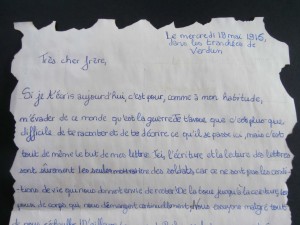 Le mercredi 18 mai 1916,
dans les tranchées de
Verdun
Très cher frère,
Si je t'écris aujourd'hui, c'est pour, comme à mon habitude,
m'évader de ce monde qu'est la guerre. Je t'avoue que c'est plus que
difficile de te raconter et de te décrire ce qu'il se passe ici, mais c'est
tout de même le but de ma lettre. Ici, l'écriture et la lecture des lettres
sont sûrement les seules des soldats, car ce ne sont pas les condi-
tions de vie qui nous donnent envie de rester. De la boue jusqu'à la ceinture,
poux de corps qui nous démangent continuellement, nous essayons malgré tout